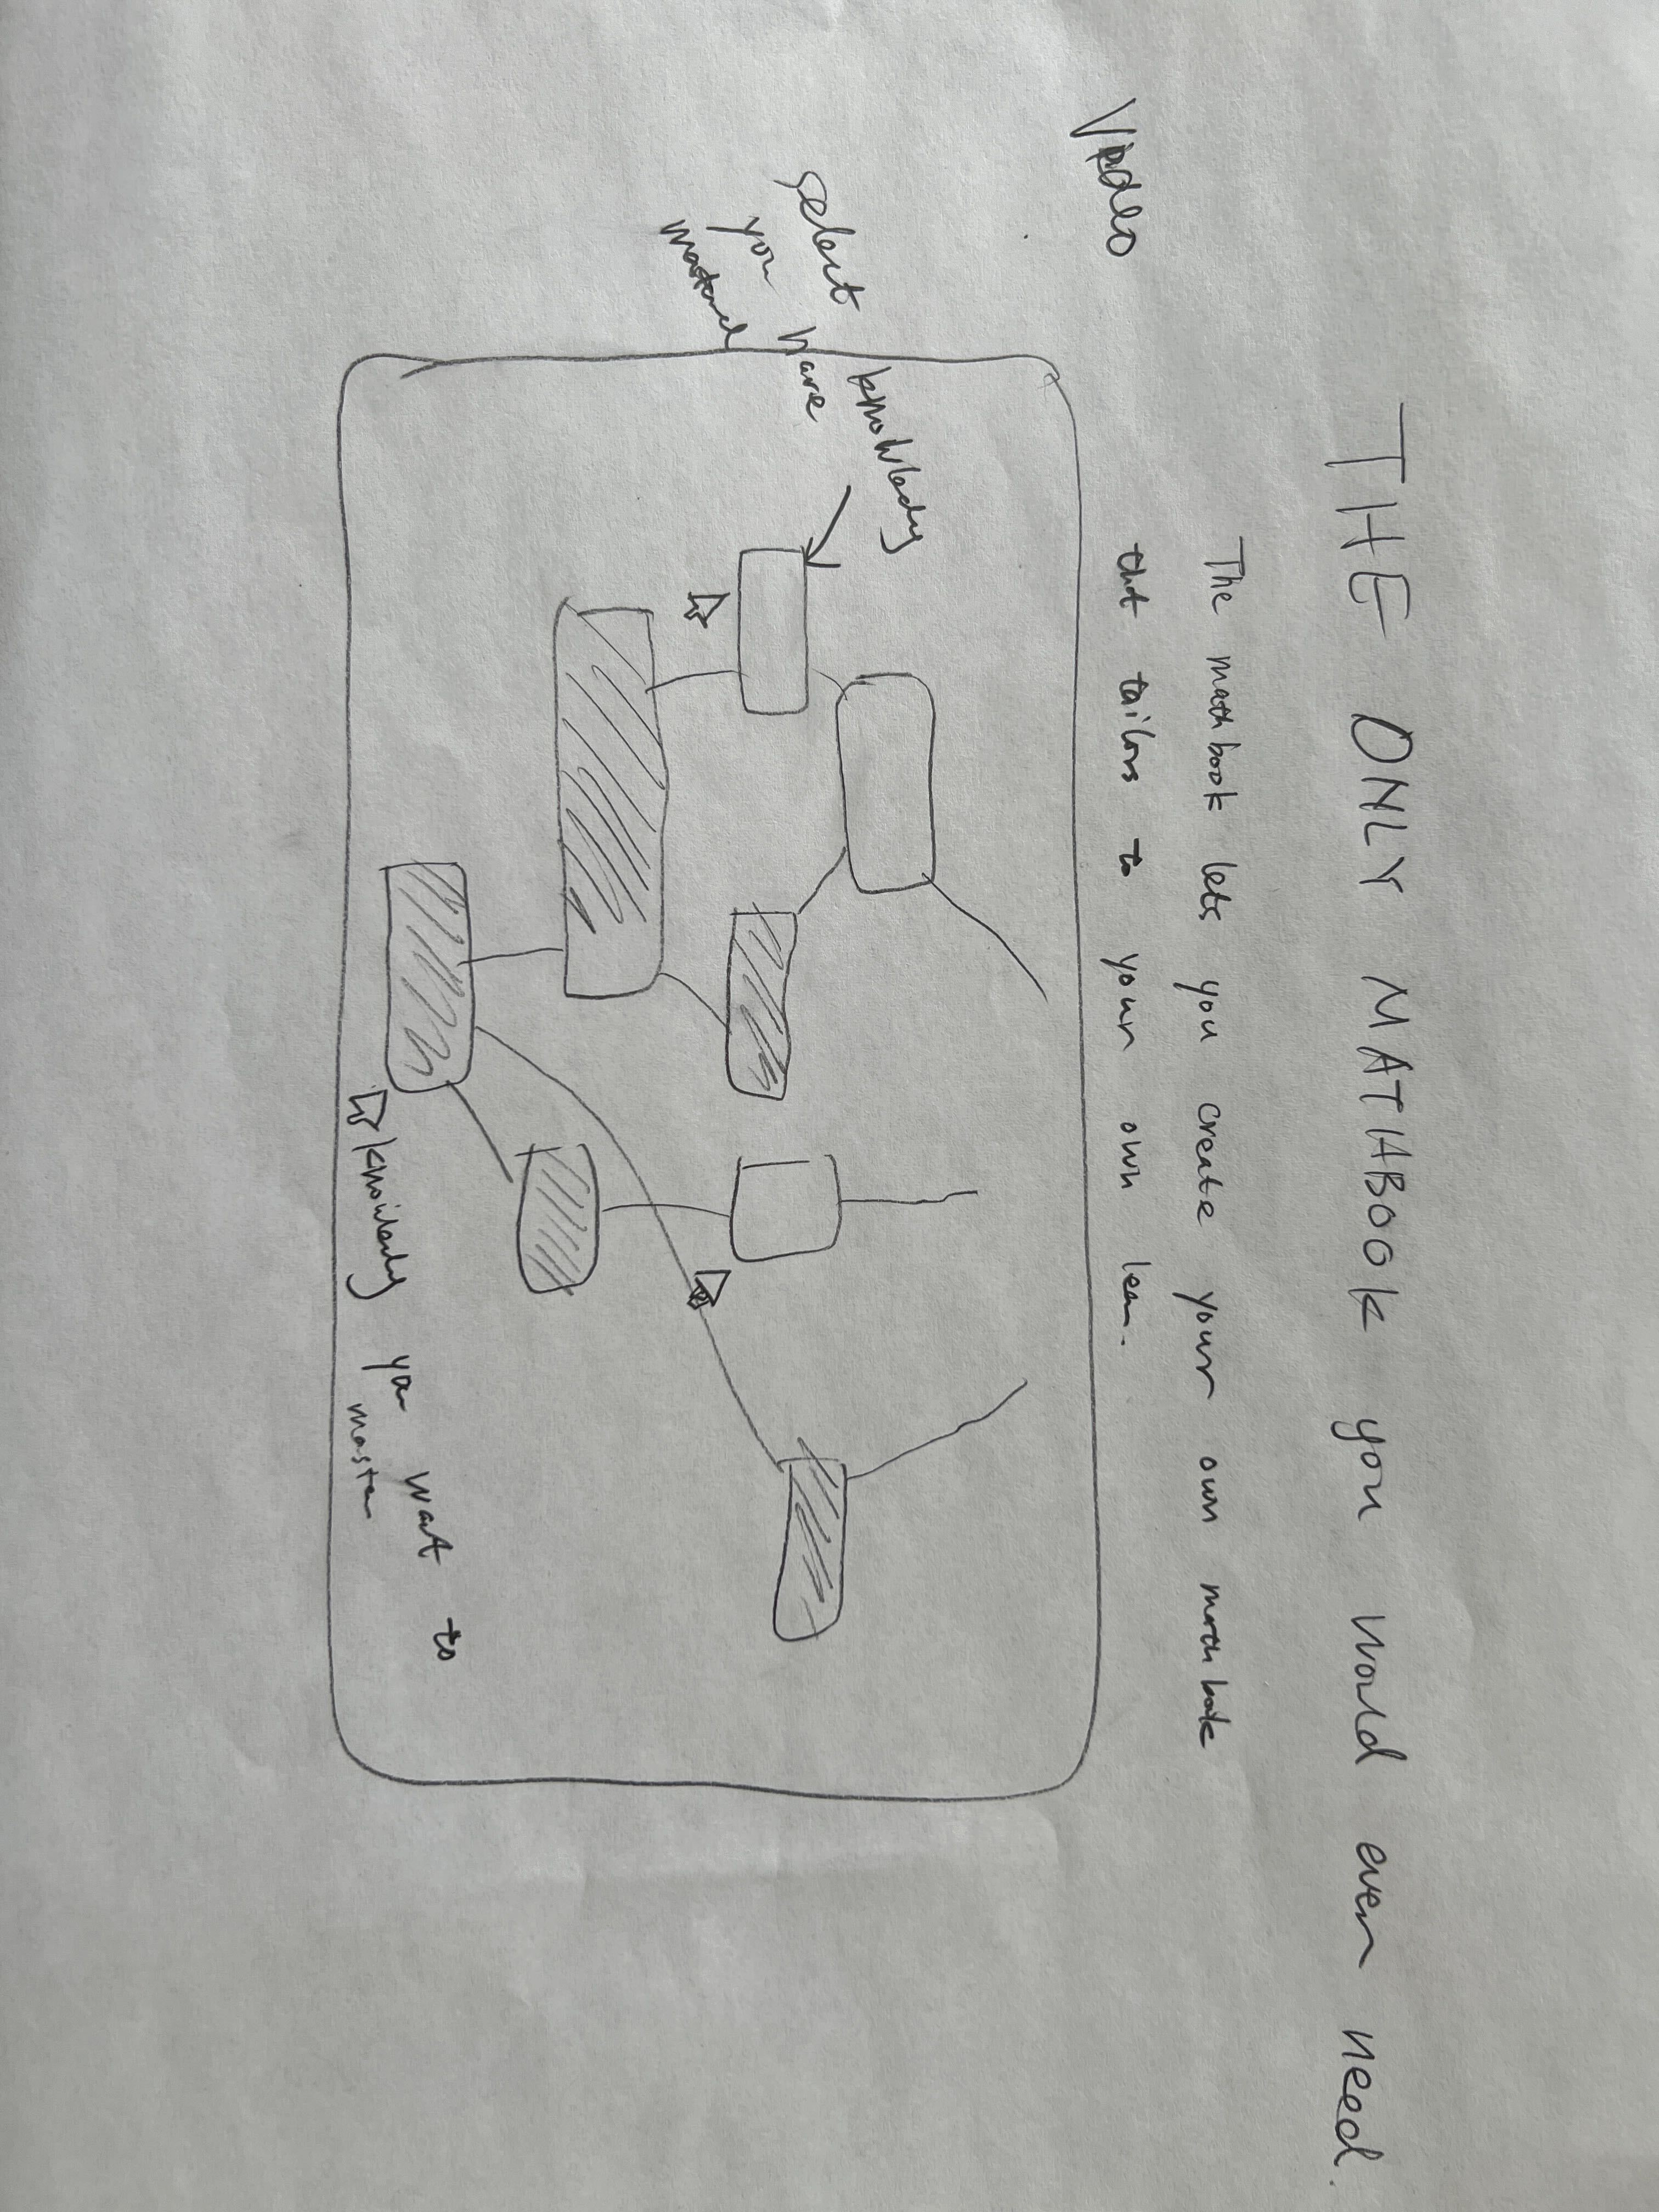 THE ONLY MATHBOOK you would ever need.
The mathbook lets you create your own mathbook
that tailors to your own learn.
Video
select knowledg
you have
mastered
knowledg you want to
master